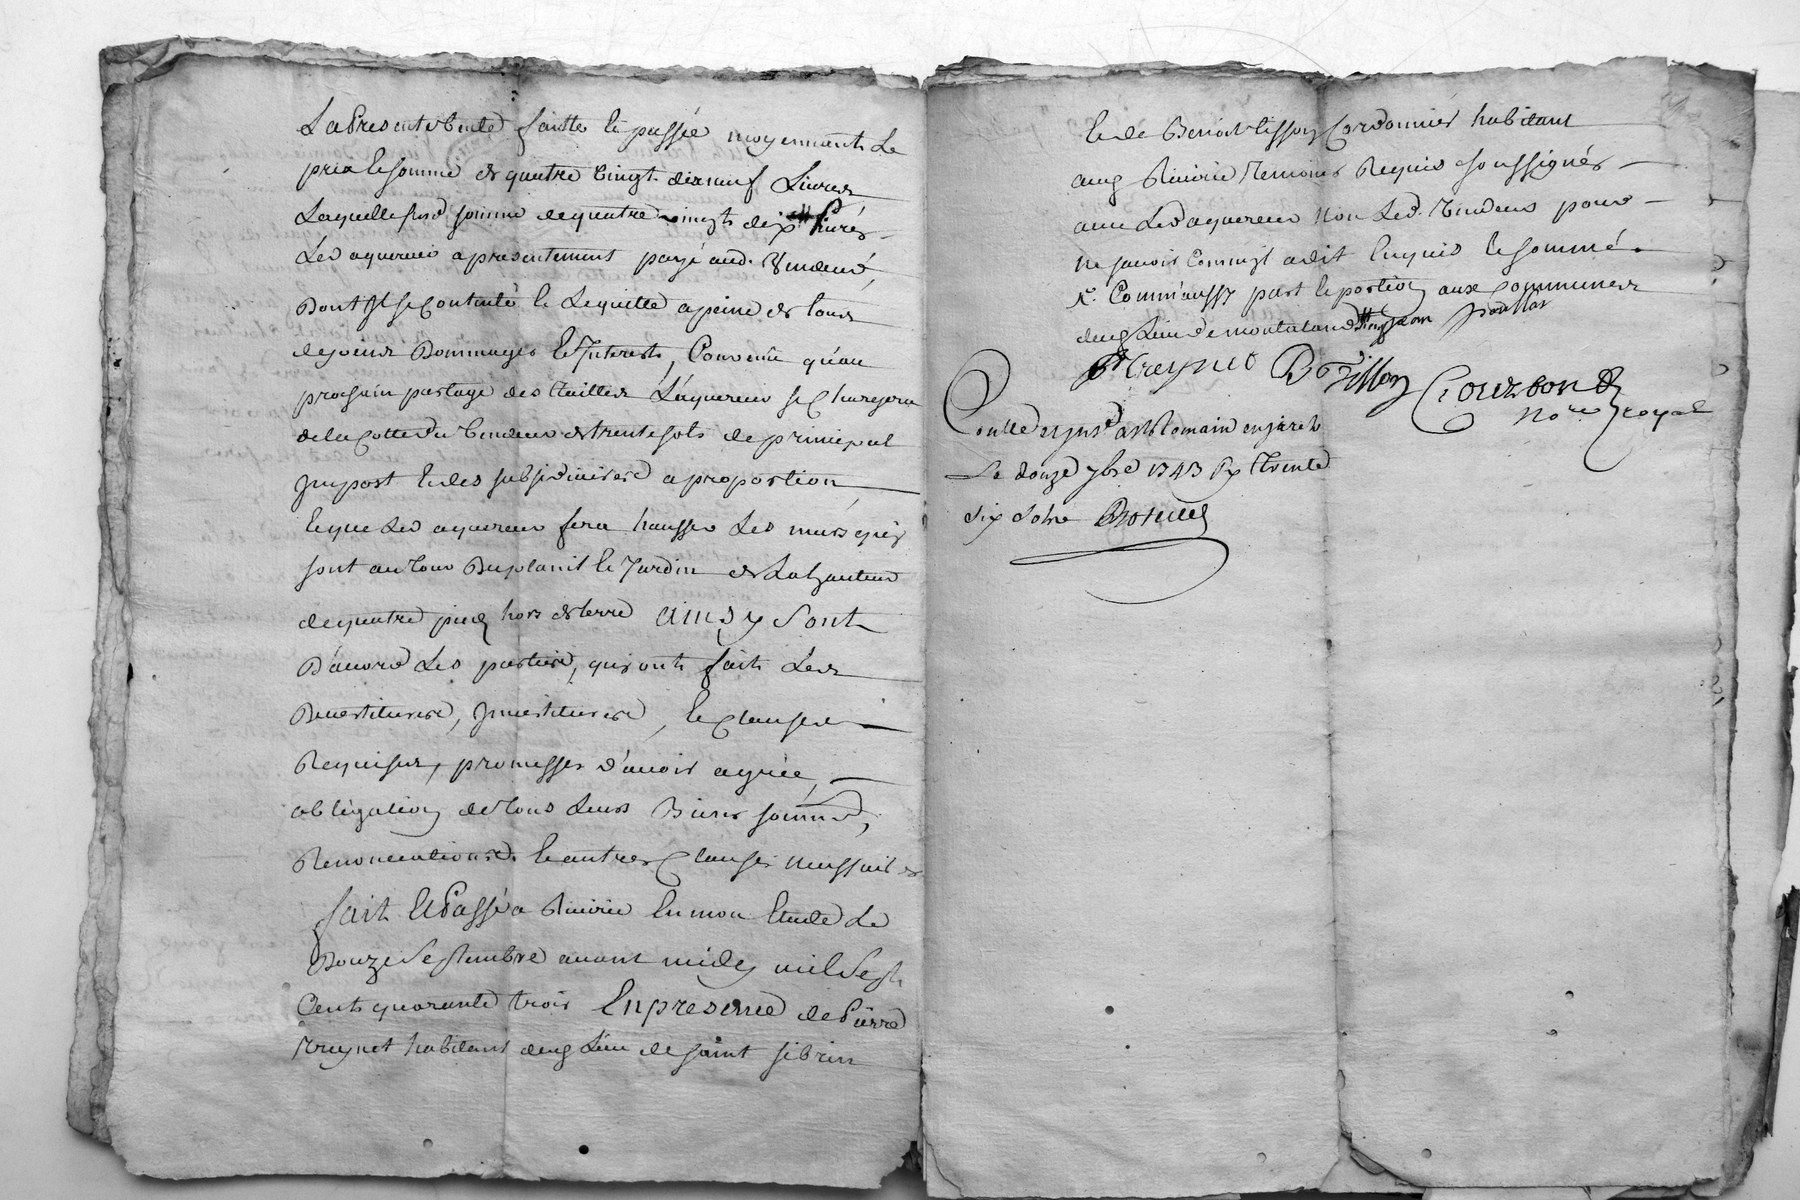 La Presente Vente faitte et passée moyennant Le
prix et somme de quatre vingt dix neuf Livres
Laquelle susd somme de quatre vingts dix Livres
Led aquereur a presentement payé aud. Vendeur,
Dont Il se Contente et Le quitte a peine de tous
depens Dommages et Interests, Convenu qu'au
prochain partage des tailles L'aquereur se Chargera
de la Cotte du Vendeur de trente sols de principal
Impost et des subsidiaires a proportion
et que Led aquereur fera hausser Les murs qui
sont autour Du plassit et Jardin de La hauteur
de quatre pieds hors de terre ainsy sont
D'acord Les parties, qui ont fait Les
Devestitures, Investitures, et Clauses
Requises, promesses d'avoir agrée,
obligation de tous Leurs Biens soumis,
Renonciations et autres Clauses necessaires
fait et Passé a Riverie en mon Etude Le
Douze Septembre avant midy mil Sept
Cents quarante trois En presence de Pierre
habitant dud Lieu de saint
et de Benoit tisson Cordonnier habitant
aud Riverie temoins Requis soussignés
avec Led aquereur non Led. Vendeur pour
ne savoir Comme il a dit Enquis et sommé.
part et portion aux communes
dud Lieu de
B Tisson Courbon
No.re royal
Conllé et a St Romain en jarets
Le douze 7bre 1743 Rx trente
six sols